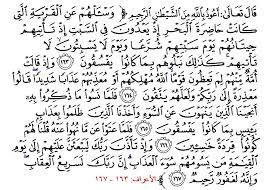 قَالَ تَعَالَىٰ: أَعُوذُ بِاللَّهِ مِنَ الشَّيْطَانِ الرَّجِيمِ ﴿ وَسْـَٔلْهُمْ عَنِ ٱلْقَرْيَةِ ٱلَّتِى
كَانَتْ حَاضِرَةَ ٱلْبَحْرِ إِذْ يَعْدُونَ فِى ٱلسَّبْتِ إِذْ تَأْتِيهِمْ
حِيتَانُهُمْ يَوْمَ سَبْتِهِمْ شُرَّعًا وَيَوْمَ لَا يَسْبِتُونَ ۙ لَا
تَأْتِيهِمْ ۚ كَذَٰلِكَ نَبْلُوهُم بِمَا كَانُوا۟ يَفْسُقُونَ ١٦٣ وَإِذْ قَالَتْ
أُمَّةٌ مِّنْهُمْ لِمَ تَعِظُونَ قَوْمًا ۙ ٱللَّهُ مُهْلِكُهُمْ أَوْ مُعَذِّبُهُمْ عَذَابًا شَدِيدًا ۖ قَالُوا۟
مَعْذِرَةً إِلَىٰ رَبِّكُمْ وَلَعَلَّهُمْ يَتَّقُونَ ١٦٤ فَلَمَّا نَسُوا۟ مَا ذُكِّرُوا۟
بِهِۦٓ أَنجَيْنَا ٱلَّذِينَ يَنْهَوْنَ عَنِ ٱلسُّوٓءِ وَأَخَذْنَا ٱلَّذِينَ ظَلَمُوا۟ بِعَذَابٍۭ
بَـِٔيسٍۭ بِمَا كَانُوا۟ يَفْسُقُونَ ١٦٥ فَلَمَّا عَتَوْا۟ عَن مَّا نُهُوا۟ عَنْهُ قُلْنَا لَهُمْ
كُونُوا۟ قِرَدَةً خَـٰسِـِٔينَ ١٦٦ وَإِذْ تَأَذَّنَ رَبُّكَ لَيَبْعَثَنَّ عَلَيْهِمْ إِلَىٰ يَوْمِ
ٱلْقِيَـٰمَةِ مَن يَسُومُهُمْ سُوٓءَ ٱلْعَذَابِ ۗ إِنَّ رَبَّكَ لَسَرِيعُ ٱلْعِقَابِ ۖ
وَإِنَّهُۥ لَغَفُورٌ رَّحِيمٌ ١٦٧ ﴾ الأعراف: ١٦٣ - ١٦٧